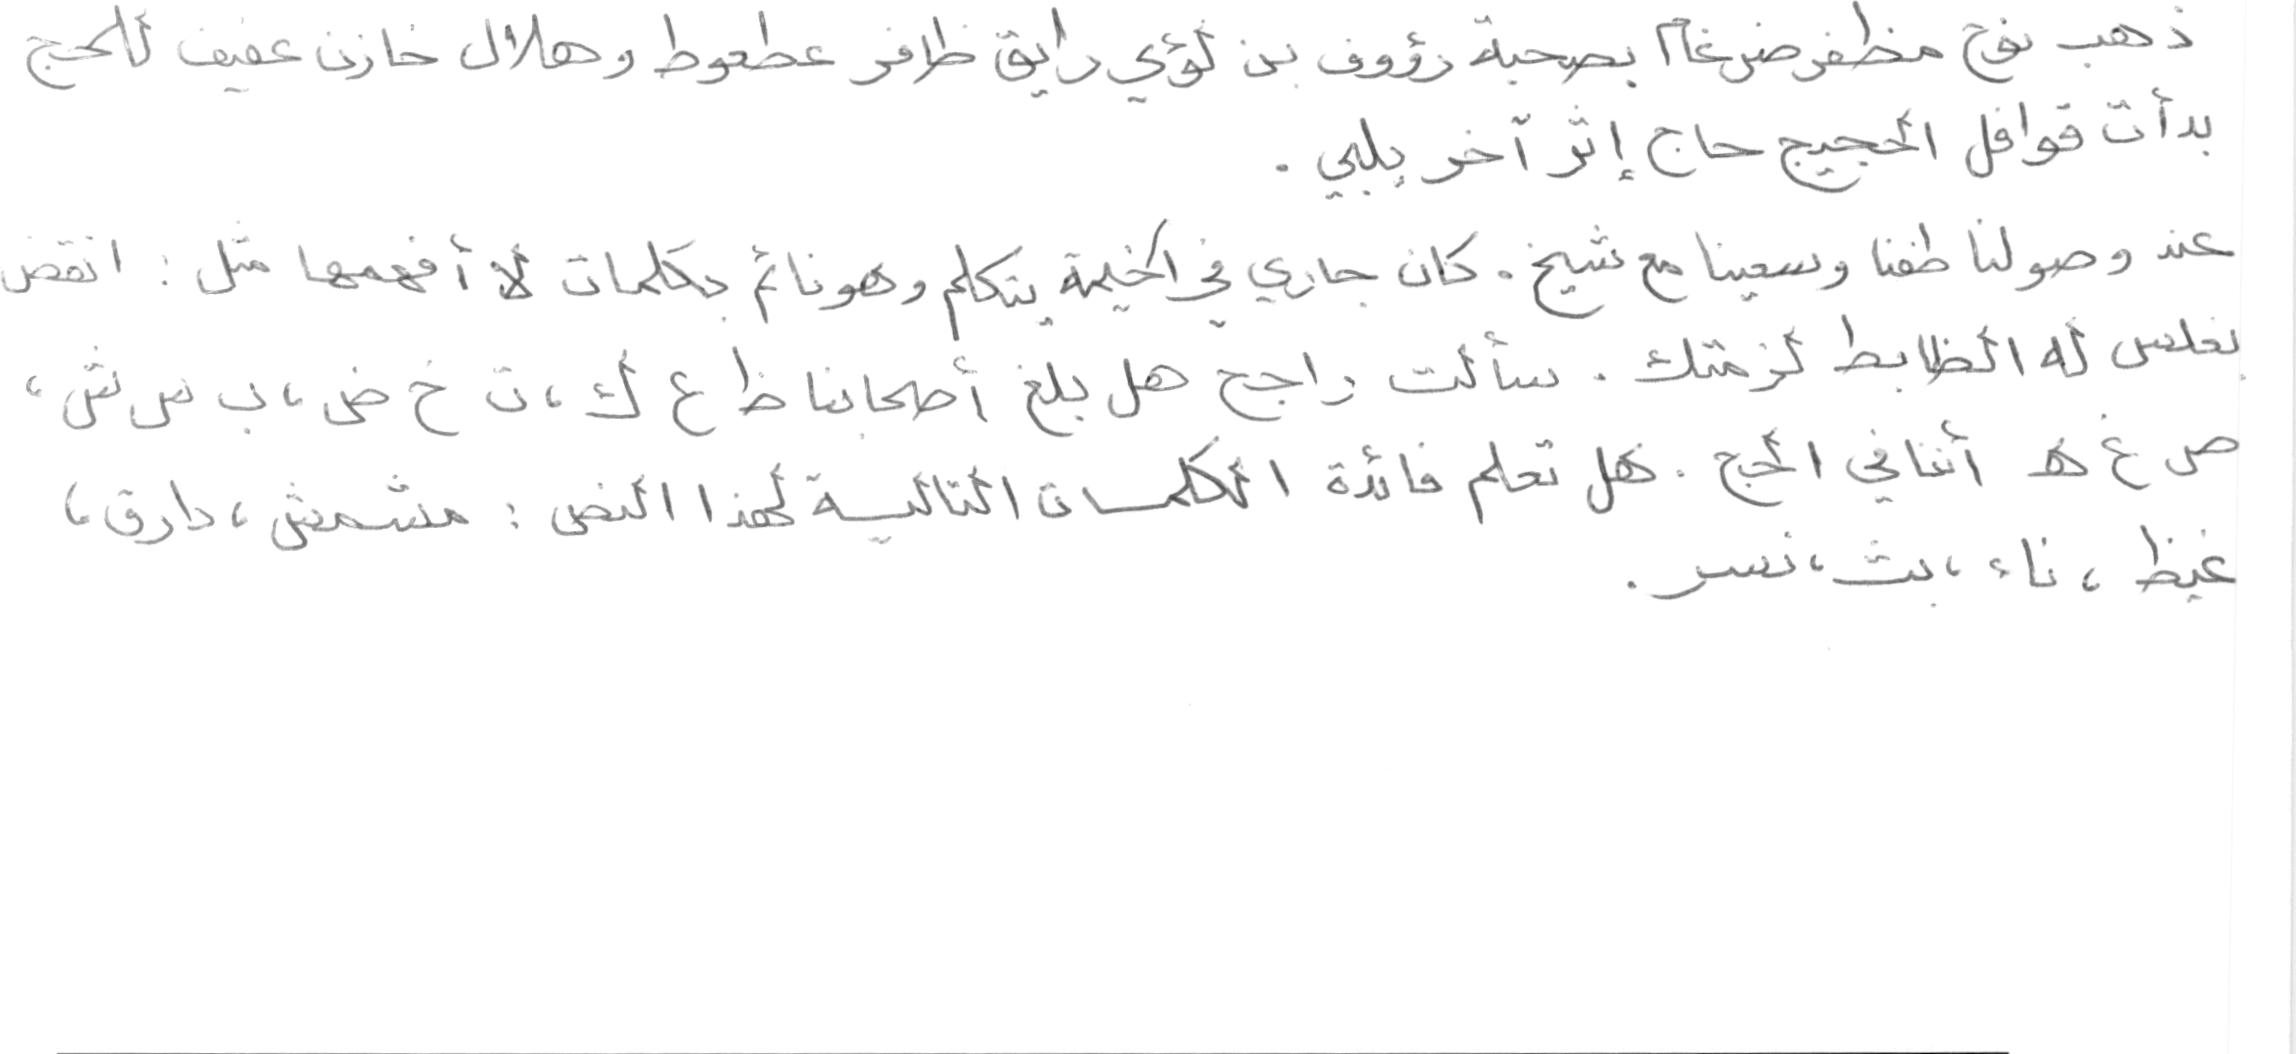 ذهب نوح مظفر ضرغام بصحبة رؤوف بن لؤي رايق ظافر عطعوط وهلال خازن عفيف للحج
بدأت قوافل الحجيج حاج إثر آخر يلبي .
عند وصولنا طفنا وسعينا مع شيخ . كان جاري في الخيمة يتكلم وهو نائم بكلمات لا أفهمها مثل : انقض
بغلس له الظابط لزمتك . سألت راجح هل بلغ أصحابنا ظ ع ك ، ت خ ض ، ب س ش ،
ص غ ه أننا في الحج . هل تعلم فائدة الكلمات التالية لهذا النص : مشمش ، دارق ،
غيظ ، ناء ، بث ، نسر .